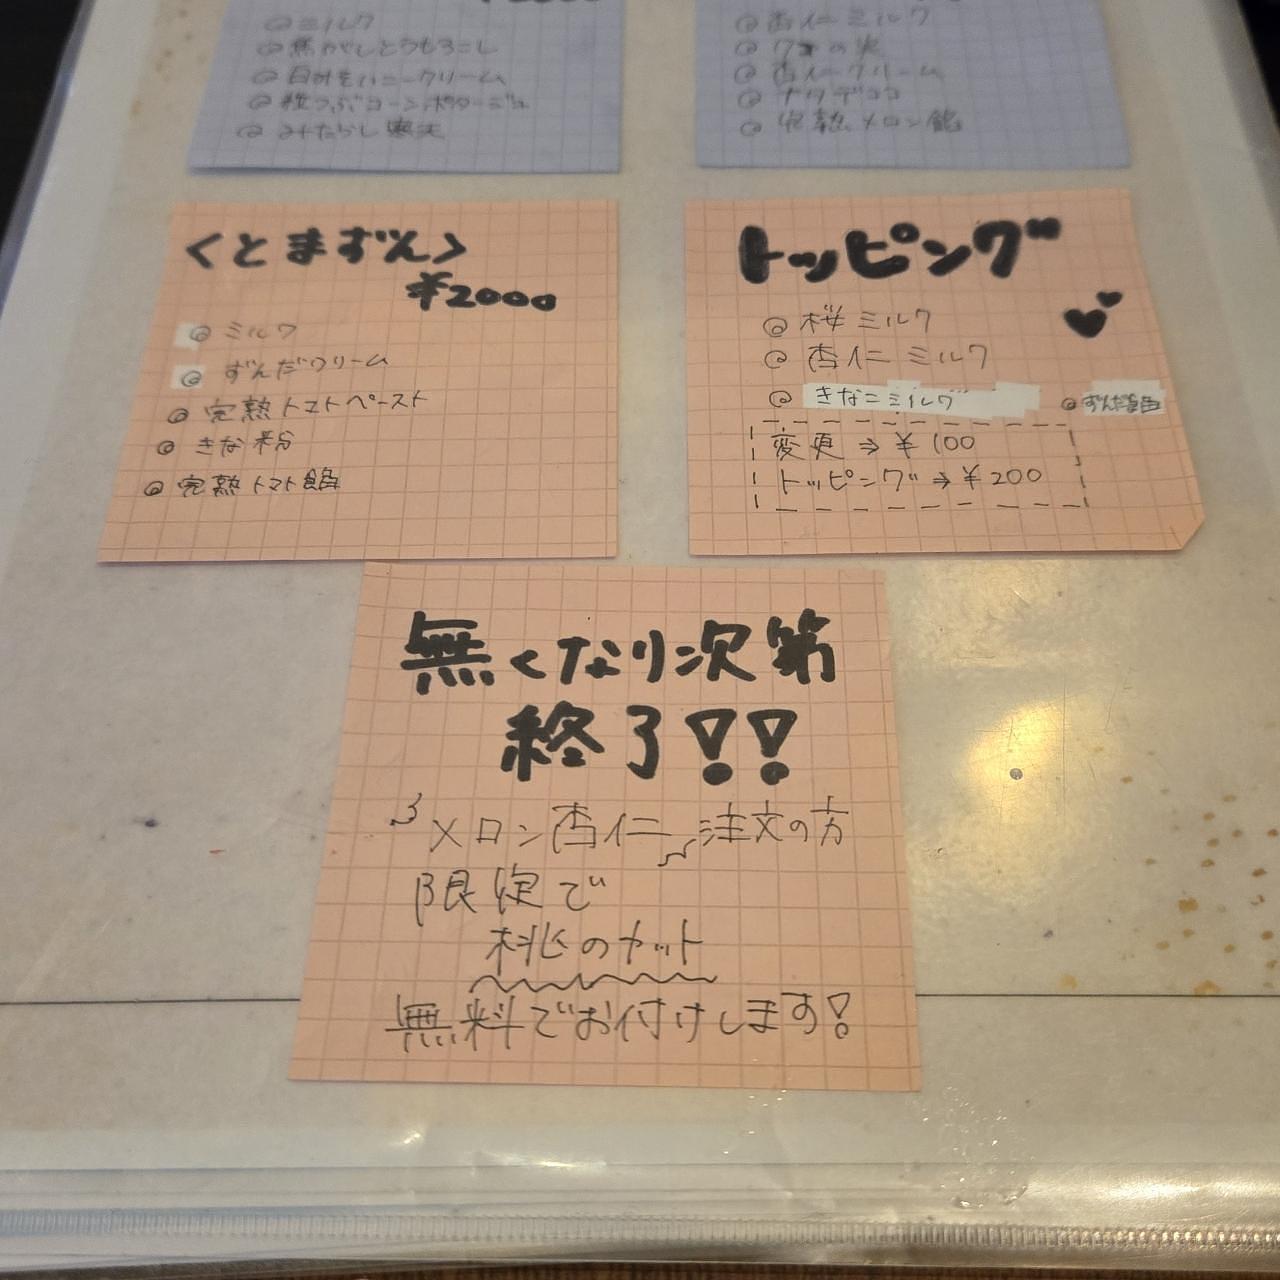 ◎ミルク
◎焦がしとうもろこし
◎白みそハニークリーム
◎粒つぶコーンポタージュ
◎みたらし寒天
◎杏仁ミルク
◎クコの実
◎杏仁クリーム
◎ナタデココ
◎完熟メロン餡
<とまずん>
¥2000
◎ミルク
◎ずんだクリーム
◎完熟トマトペースト
◎きな粉
◎完熟トマト餡
トッピング
◎桜ミルク
◎杏仁ミルク
◎きなこミルク ◎ずんだ餡
変更⇒¥100
トッピング⇒¥200
無くなり次第
終了!!
メロン杏仁 注文の方
限定で
桃のカット
無料でお付けします!